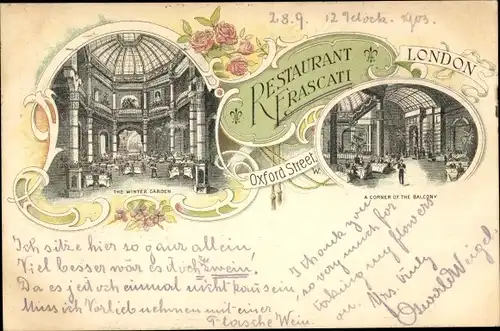 28.9. 12 Glock. 1903.
RESTAURANT
FRASCATI
LONDON
Oxford Street. W.
THE WINTER GARDEN
A CORNER OF THE BALCONY
Ich sitze hier so ganz allein,
Viel besser wär es doch zu zwein.
Da es jedoch einmal nicht kann sein,
Muss ich Vorlieb nehmen mit einer
Flasche Wein.
I thank you
so very much for
taking my flowers
on. Yrs truly
Oswald Weigel.